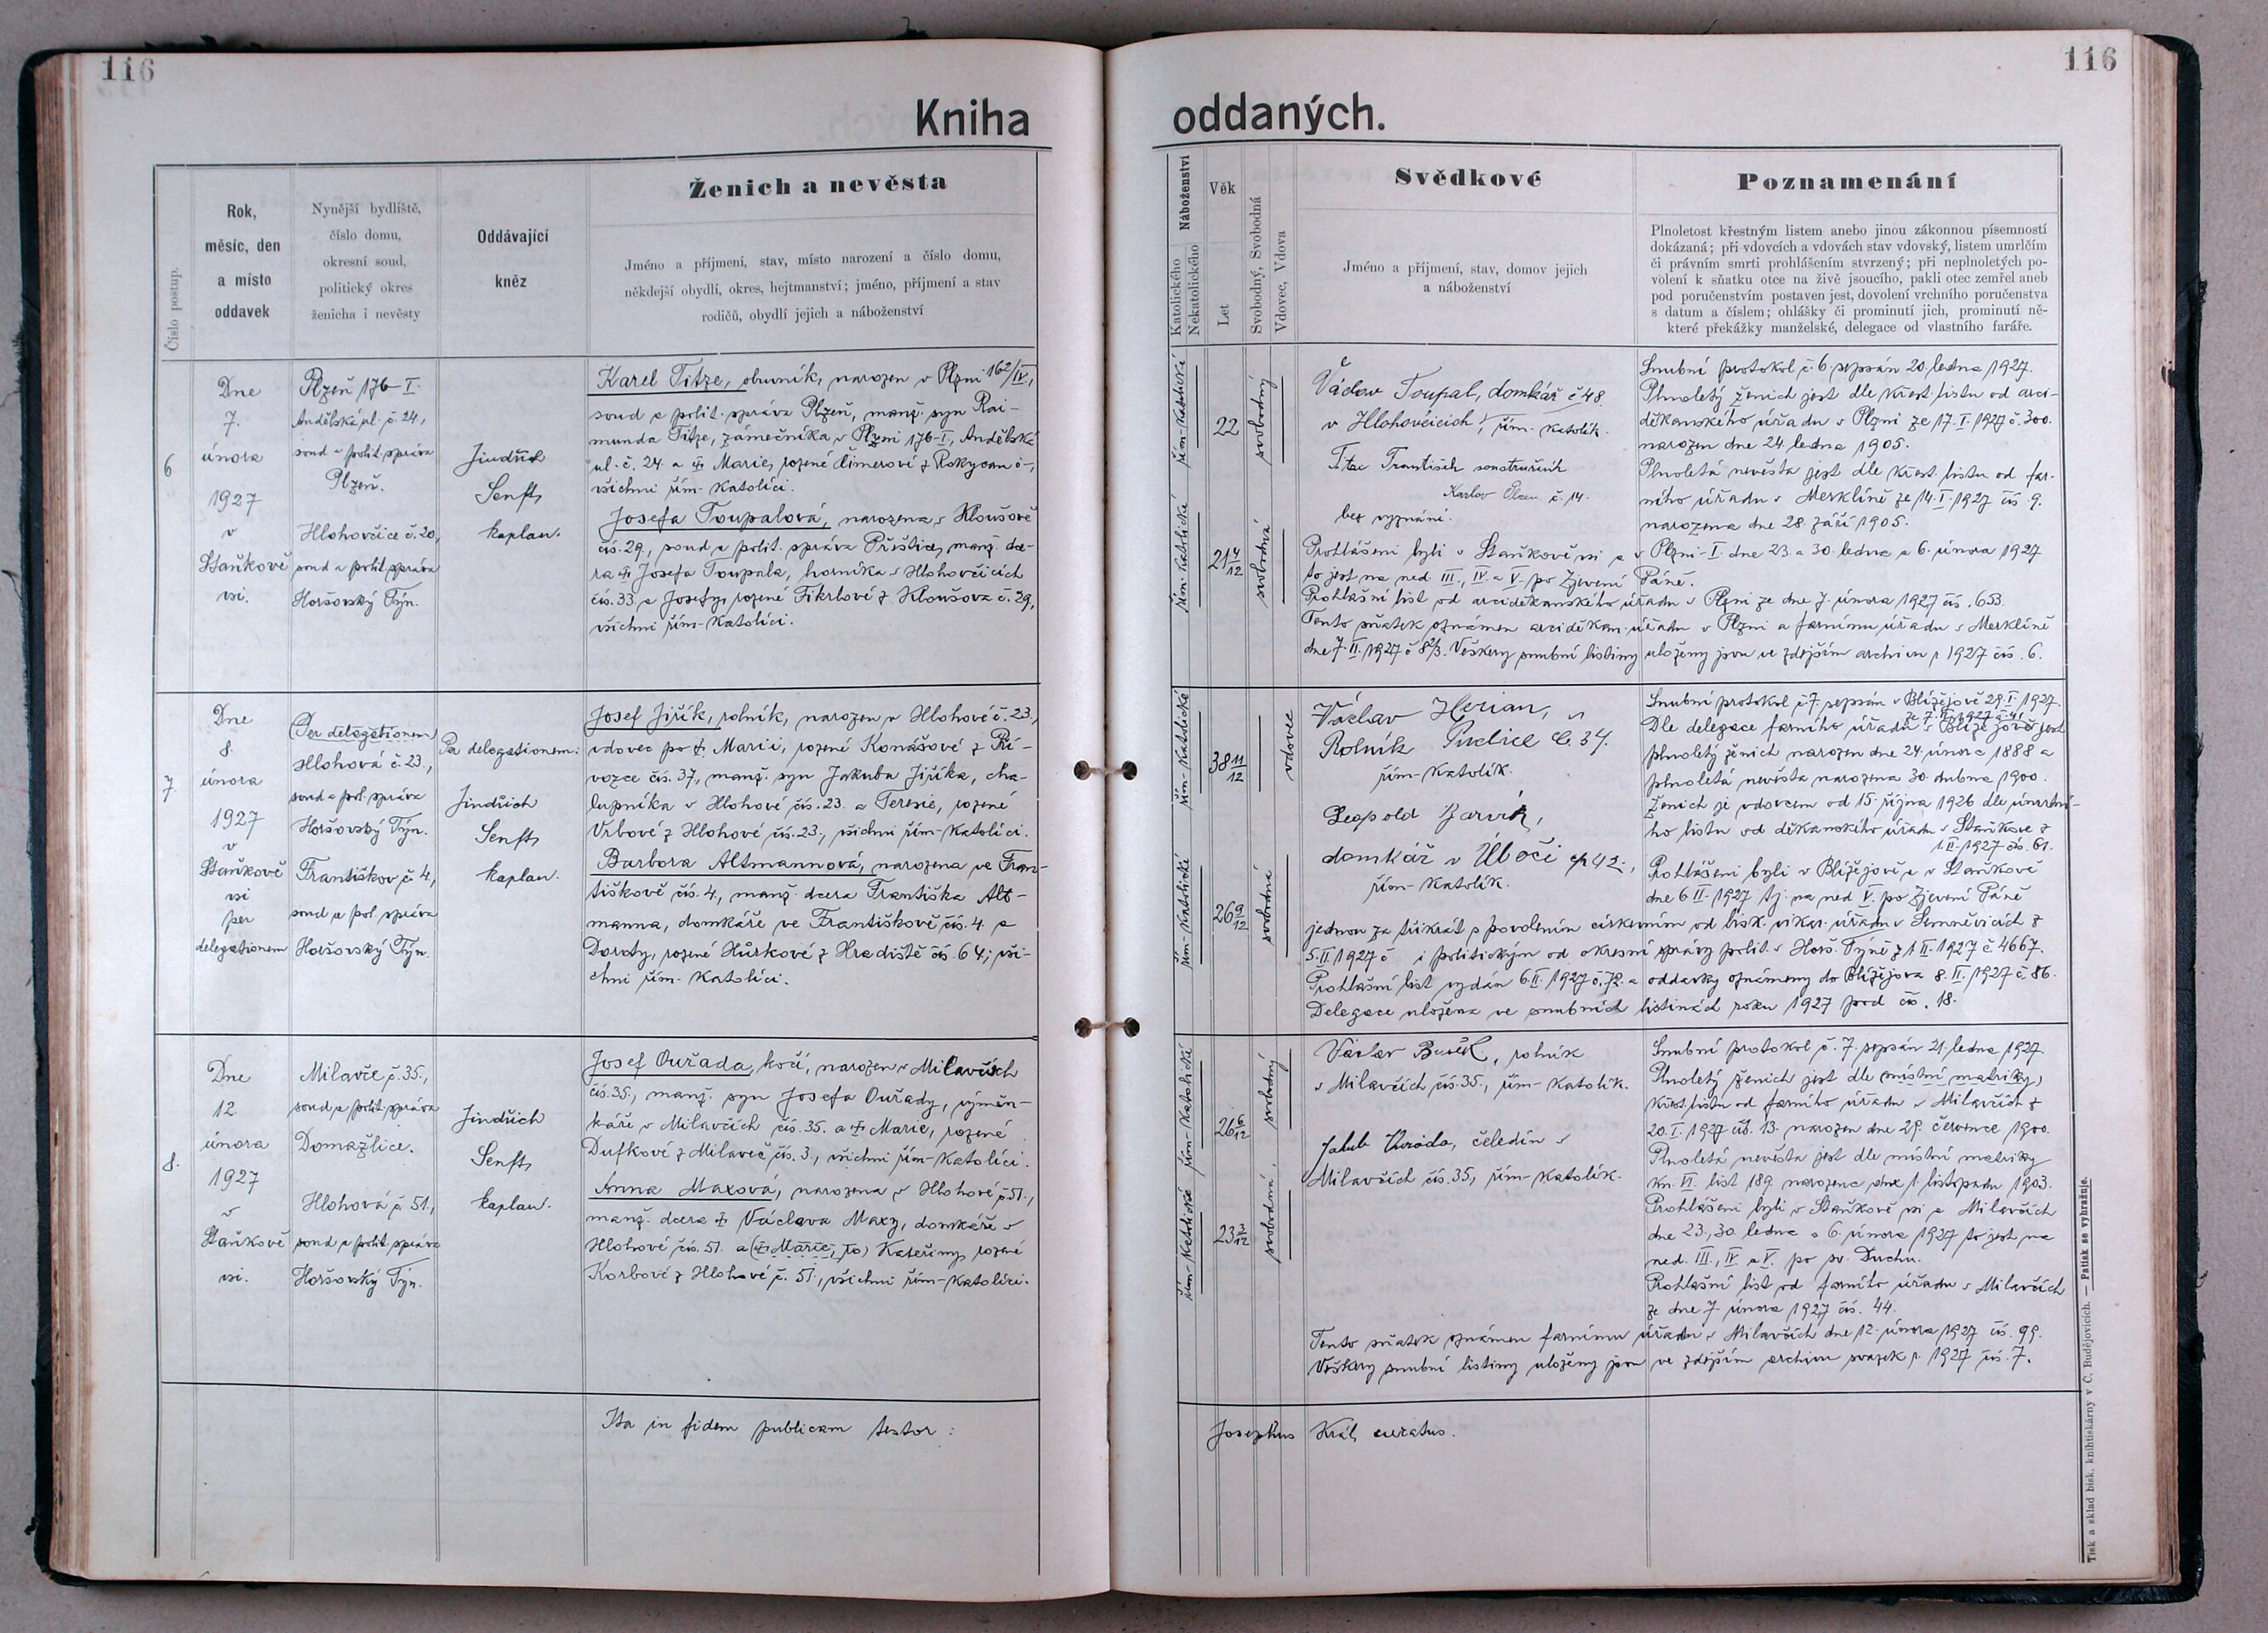 116
116
Kniha
oddaných.
Číslo postup.
Rok,
měsíc, den
a místo
oddavek
Nynější bydliště,
číslo domu,
okresní soud,
politický okres
ženicha i nevěsty
Oddávající
kněz
Ženich a nevěsta
Jméno a příjmení, stav, místo narození a číslo domu,
někdejší obydlí, okres, hejtmanství; jméno, příjmení a stav
rodičů, obydlí jejich a náboženství
Náboženství
Katolického
Nekatolického
Věk
Let
Svobodný, Svobodná
Vdovec, Vdova
Svědkové
Jméno a příjmení, stav, domov jejich
a náboženství
Poznamenání
Plnoletost křestným listem anebo jinou zákonnou písemností
dokázaná; při vdovcích a vdovách stav vdovský, listem umrlčím
či právním smrti prohlášením stvrzený; při neplnoletých po-
volení k sňatku otce na živě jsoucího, pakli otec zemřel aneb
pod poručenstvím postaven jest, dovolení vrchního poručenstva
s datum a číslem; ohlášky či prominutí jich, prominutí ně-
které překážky manželské, delegace od vlastního faráře.
6
Dne
7.
února
1927
v
Staňkově
vsi.
Plzeň 176-I.
Andělská ul. č. 24.,
soud a polit. správa
Plzeň.
Hlohovčice č. 20,
soud a polit. správa
Horšovský Týn.
Jindřich
Senft,
kaplan.
Karel Titze, obuvník, narozen v Plzni 162/IV,
soud a polit. správa Plzeň, manž. syn Rai-
munda Titze, zámečníka v Plzni 176-I., Andělská
ul. č. 24 a † Marie, rozené Zímerové z Rokycan č-,
všichni řím-katolíci.
Josefa Toupalová, narozena v Kloušově
čís. 29, soud a polit. správa Přeštice, manž. dce-
ra † Josefa Toupala, horníka v Hlohovčicích
čís. 33 a Josefy, rozené Fikrlové z Kloušova č. 29,
všichni řím-katolíci.
řím-katolické
řím-katolické
22
21 4/12
svobodný
svobodná
Václav Toupal, domkář č 48.
v Hlohovčicích, řím-katolík.
Titze František soustružník
Karlov Plzeň č. 14.
bez vyznání.
Snubní protokol č. 6 sepsán 20. ledna 1927.
Plnoletý ženich jest dle křest. listu od arci-
děkanského úřadu v Plzni ze 17. I. 1927 č. 300.
narozen dne 24. ledna 1905.
Plnoletá nevěsta jest dle křest. listu od far-
ního úřadu v Merklíně ze 14. I. 1927 čís. 9.
narozena dne 28. září 1905.
Prohlášeni byli v Staňkově vsi a v Plzni-I. dne 23. a 30. ledna a 6. února 1927
to jest na ned. III., IV. a V. po Zjevení Páně.
Prohlašní list od arciděkanského úřadu v Plzni ze dne 7. února 1927 čís. 653.
Tento sňatek oznámen arciděkan. úřadu v Plzni a farnímu úřadu v Merklíně
dne 7. II. 1927 č 82/3. Veškery snubní listiny uloženy jsou ve zdejším archivu r 1927 čís. 6.
7
Dne
8.
února
1927
v
Staňkově
vsi
per
delegationem
(Per delegationem)
Hlohová č. 23.,
soud a pol. správa
Horšovský Týn.
Františkov č. 4,
soud a pol. správa
Horšovský Týn.
Per delegationem:
Jindřich
Senft,
kaplan.
Josef Jiřík, rolník, narozen v Hlohové č. 23.,
vdovec po † Marii, rozené Konášové z Pří-
vozce čís. 37, manž. syn Jakuba Jiříka, cha-
lupníka v Hlohové čís. 23. a Terezie, rozené
Vrbové z Hlohové čís. 23., všichni řím-katolíci.
Barbora Altmannová, narozena ve Fran-
tiškově čís. 4., manž. dcera Františka Alt-
manna, domkáře ve Františkově čís. 4. a
Doroty, rozené Hůrkové z Hradiště čís. 64; vši-
chni řím-katolíci.
řím-katolické
řím-katolické
38 11/12
26 9/12
svobodná
vdovec
Václav Herian,
Rolník Puclice č. 34.
řím-katolík.
Leopold Barvík,
domkář v Úbočí čp 42.,
řím-katolík.
Snubní protokol č. 7. sepsán v Blížejově 29. I. 1927.
ze 7. II. 1927 č. 41
Dle delegace farního úřadu v Blížejově jest
plnoletý ženich narozen dne 24. února 1888 a
plnoletá nevěsta narozena 30. dubna 1900.
Ženich je vdovcem od 15. října 1926 dle úmrtní-
ho listu od děkanského úřadu v Staňkově z
1. II. 1927 čís. 61.
Prohlášeni byli v Blížejově a v Staňkově
dne 6 II. 1927 tj. na ned V. po Zjevení Páně
jednou za třikrát s povolením církevním od bisk. vikar. úřadu v Semněvicích z
5. II 1927 č i politickým od okresní správy polit. v Horš. Týně z 1 II. 1927 č. 4667.
Prohlašní list vydán 6. II. 1927 č. 72. a oddavky oznámeny do Blížejova 8. II. 1927 č. 86.
Delegace uložena ve snubních listinách roku 1927 pod čís. 18.
8.
Dne
12.
února
1927
v
Staňkově
vsi.
Milavče č. 35.,
soud a polit. správa
Domažlice.
Hlohová č. 51.,
soud a polit. správa
Horšovský Týn.
Jindřich
Senft,
kaplan.
Josef Ouřada, kočí, narozen v Milavčích
čís. 35., manž. syn Josefa Ouřady, výměn-
káře v Milavčích čís. 35. a † Marie, rozené
Dufkové z Milaveč čís. 3., všichni řím-katolíci.
Anna Maxová, narozena v Hlohové č. 51.,
manž. dcera † Václava Maxy, domkáře v
Hlohové čís. 51. a († Marie, ro) Kateřiny, rozené
Korbové z Hlohové č. 51., všichni řím-katolíci.
řím-katolické
řím-katolické
26 6/12
23 3/12
svobodný
svobodná
Václav Bušek, rolník
v Milavčích čís. 35., řím-katolík.
Jakub Ouřada, čeledín v
Milavčích čís. 35, řím-katolík.
Snubní protokol č. 7. sepsán 21. ledna 1927.
Plnoletý ženich jest dle (místní matriky)
křest. listu od farního úřadu v Milavčích z
20. I. 1927 čís. 13. narozen dne 29. července 1900.
Plnoletá nevěsta jest dle místní matriky
kn. VI. list 189. narozena dne 1. listopadu 1903.
Prohlášeni byli v Staňkově vsi a Milavčích
dne 23., 30. ledna a 6. února 1927 to jest na
ned. III., IV. a V. po sv. Duchu.
Prohlašní list od farního úřadu v Milavčích
ze dne 7. února 1927 čís. 44.
Tento sňatek oznámen farnímu úřadu v Milavčích dne 12. února 1927 čís. 99.
Veškery snubní listiny uloženy jsou ve zdejším archivu svazek r. 1927 čís. 7.
Ita in fidem publicam testor:
Josephus Král, curatus.
Tisk a sklad bisk. knihtiskárny v Č. Budějovicích. — Patisk se vyhražuje.